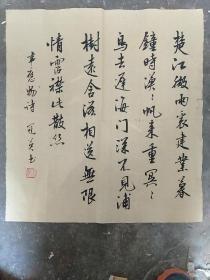 楚江微雨裏建業暮
鐘時漠〻帆来重冥〻
鳥去遲海门深不見浦
樹遠含滋相送無限
情霑襟比散丝
韋應物詩